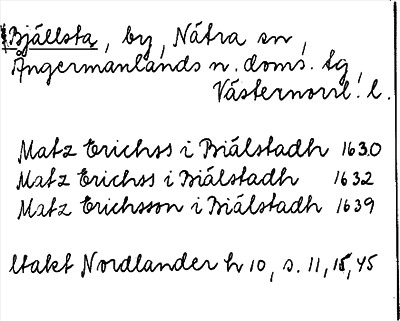 Bjällsta, by, Nätra sn,
Ångermanlands n. doms. tg,
Västernorrl. l.
Matz Erichss i Biälstadh 1630
Matz Erichss i Biälstadh 1632
Matz Erichsson i Biälstadh 1639
Utakt Nordlander h 10, s. 11, 15, 45